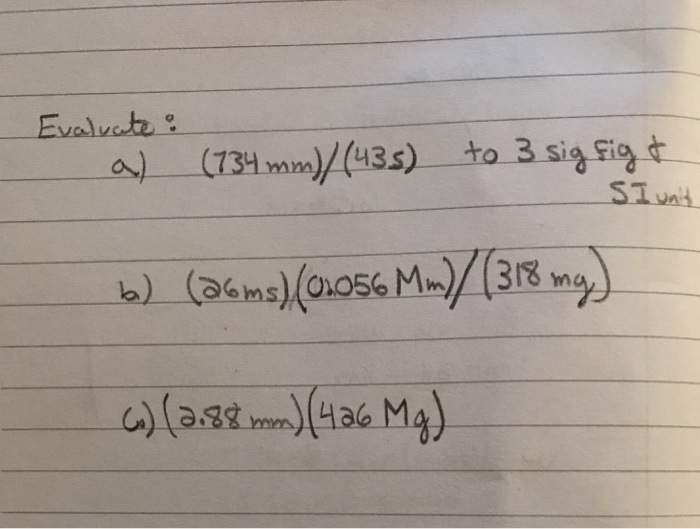 Evaluate:
a) (734 mm)/(43s) to 3 sig fig &
SI unit
b) (26ms)(0.056 Mm)/(318 mg)
c) (2.88 mm)(426 Mg)